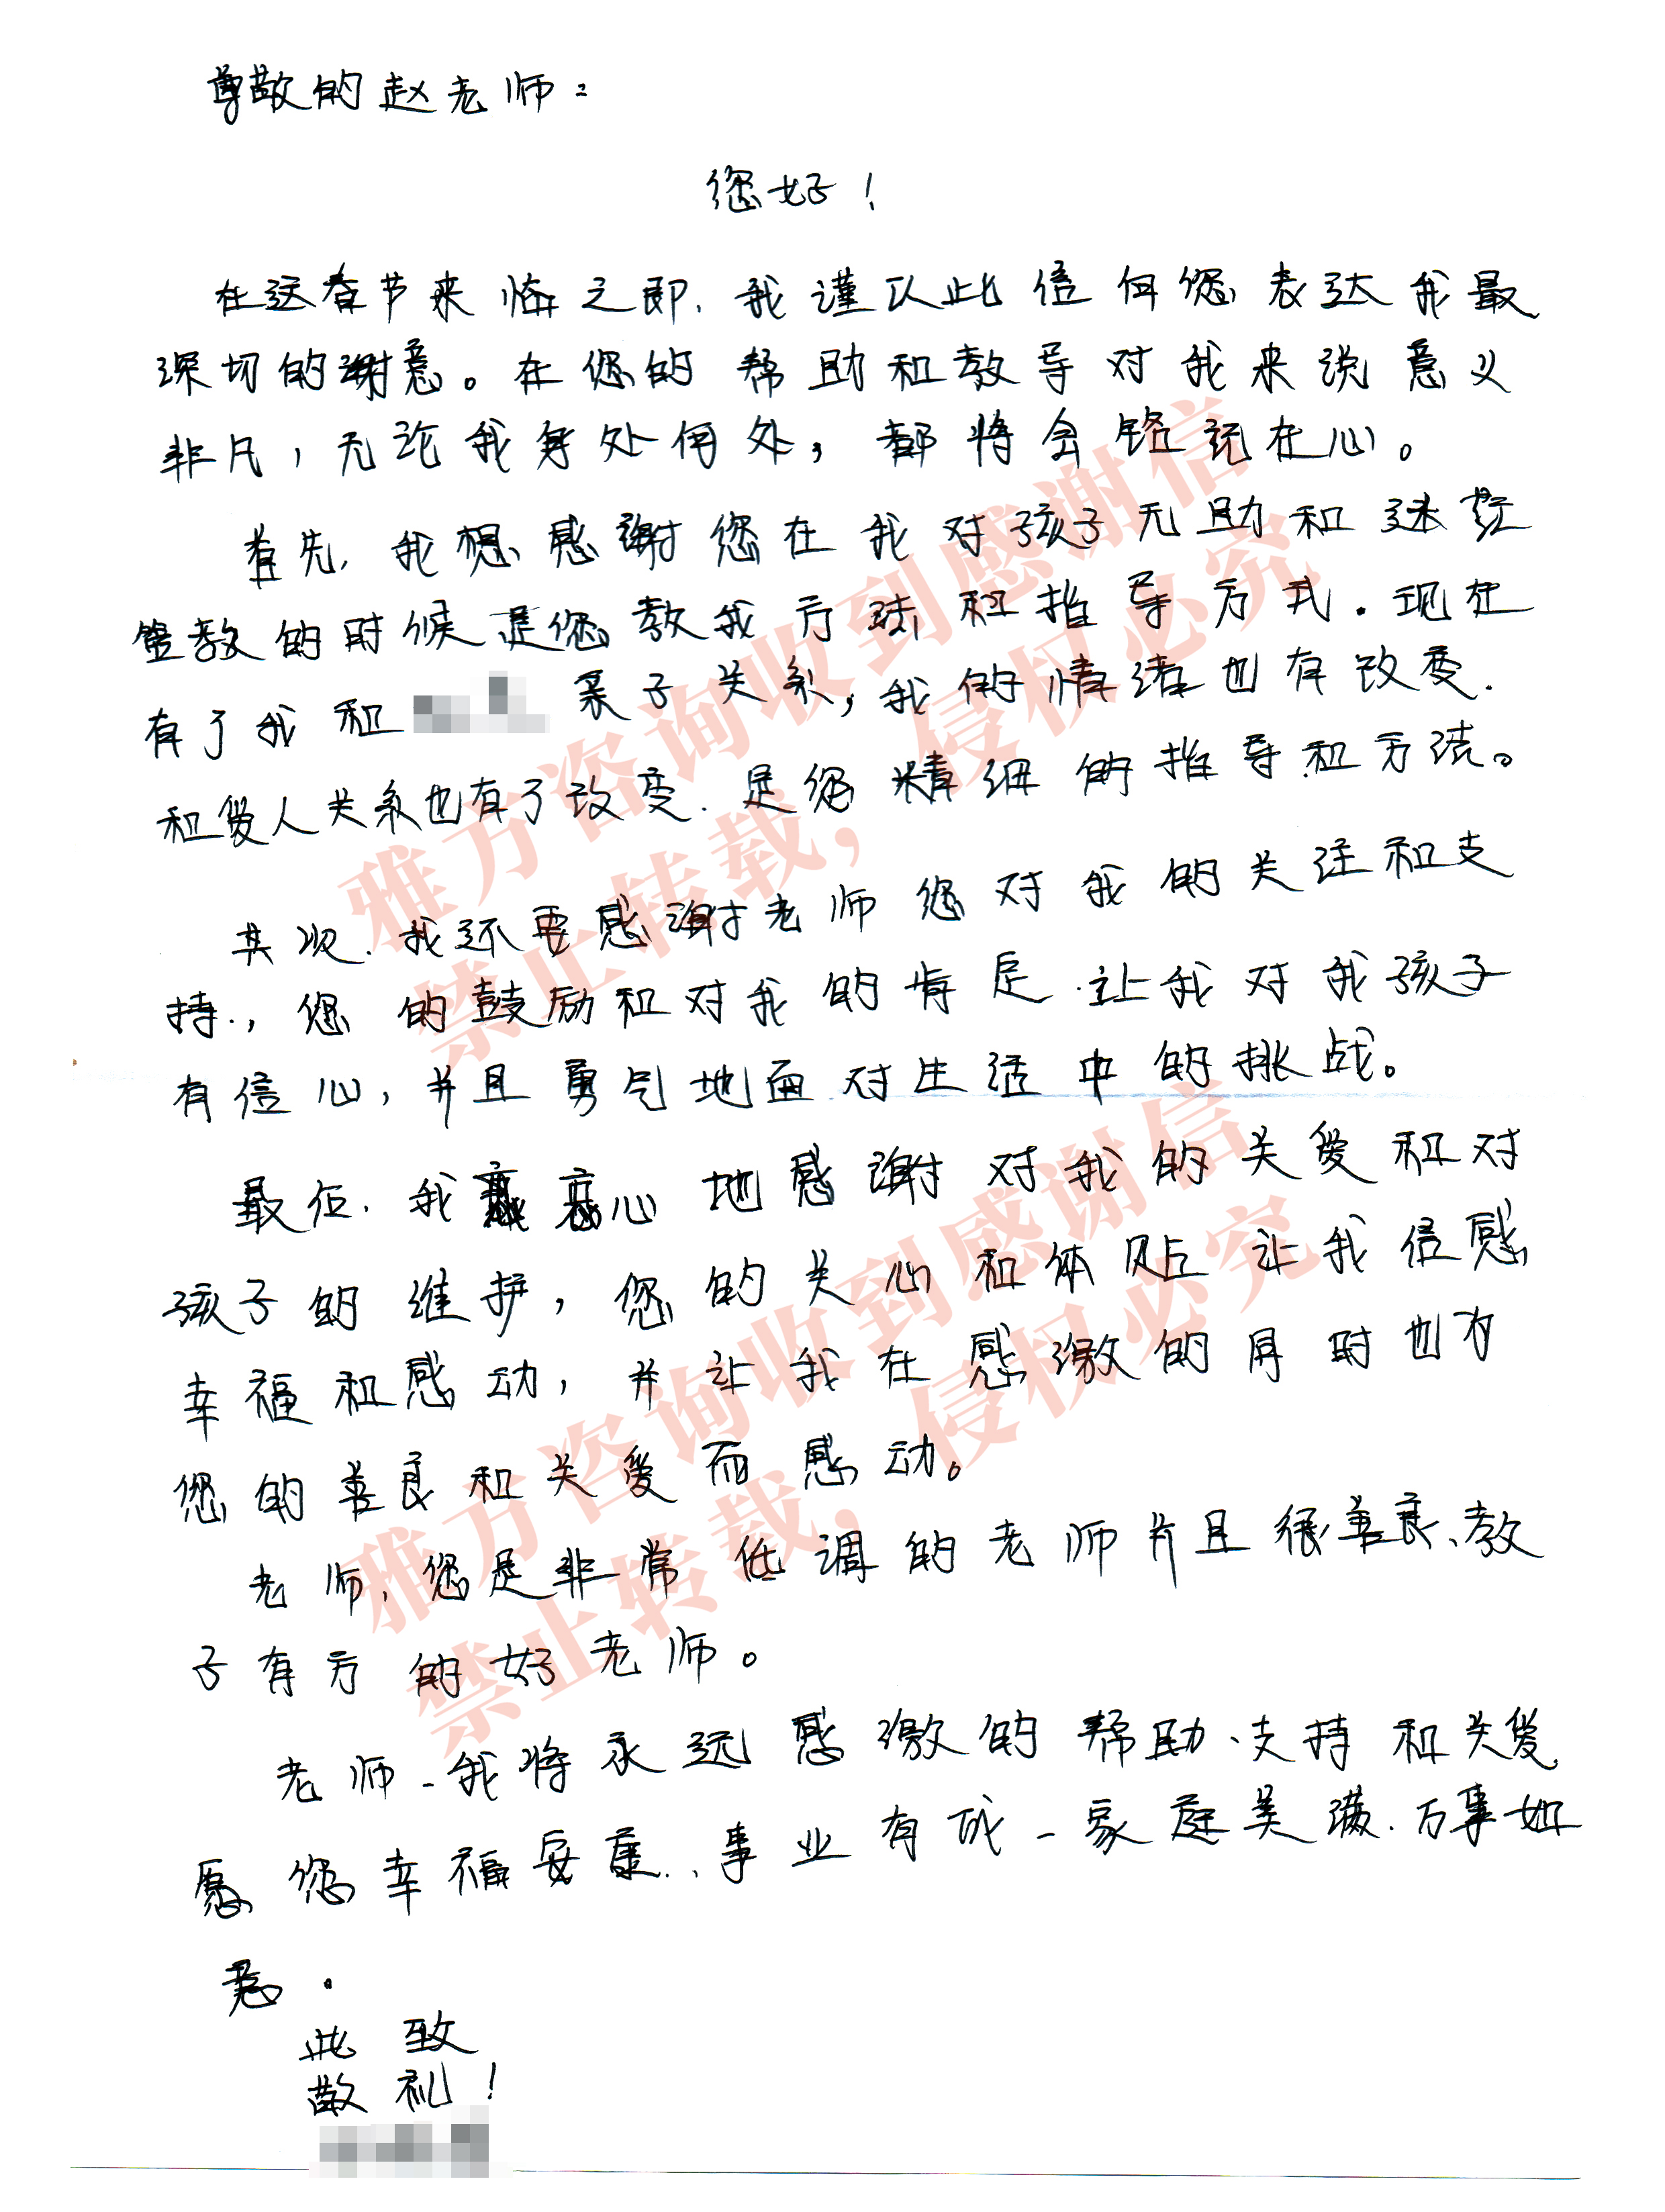 尊敬的赵老师：
您好！
在这春节来临之即，我谨以此信向您表达我最
深切的谢意。在您的帮助和教导对我来说意义
非凡，无论我身处何处，都将会铭记在心。
首先，我想感谢您在我对孩子无助和迷茫
管教的时候是您教我方法和指导方式．现在
有了我和 亲子关系，我的情绪也有改变．
和爱人关系也有了改变．是您精细的指导和方法。
其次．我还要感谢老师您对我的关注和支
持．，您的鼓励和对我的肯定．让我对我孩子
有信心，并且勇气地面对生活中的挑战。
最后．我衷心地感谢对我的关爱和对
孩子的维护，您的关心和体贴让我倍感
幸福和感动，并让我在感激的同时也为
您的善良和关爱而感动。
老师，您是非常低调的老师并且很善良、教
子有方的好老师。
老师－我将永远感激的帮助、支持和关爱
愿您幸福安康．、事业有成－家庭美满．万事如
意．
此致
敬礼！
雅方咨询收到感谢信
禁止转载，侵权必究
雅方咨询收到感谢信
禁止转载，侵权必究